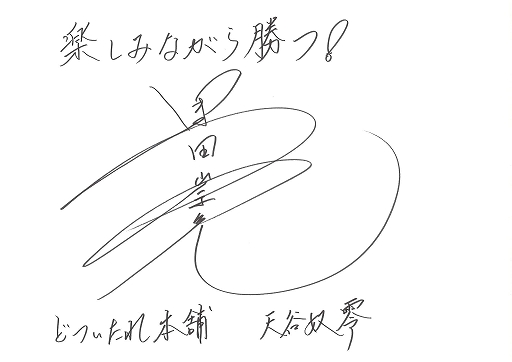 楽しみながら勝つ!
どついたれ本舗　天谷奴零